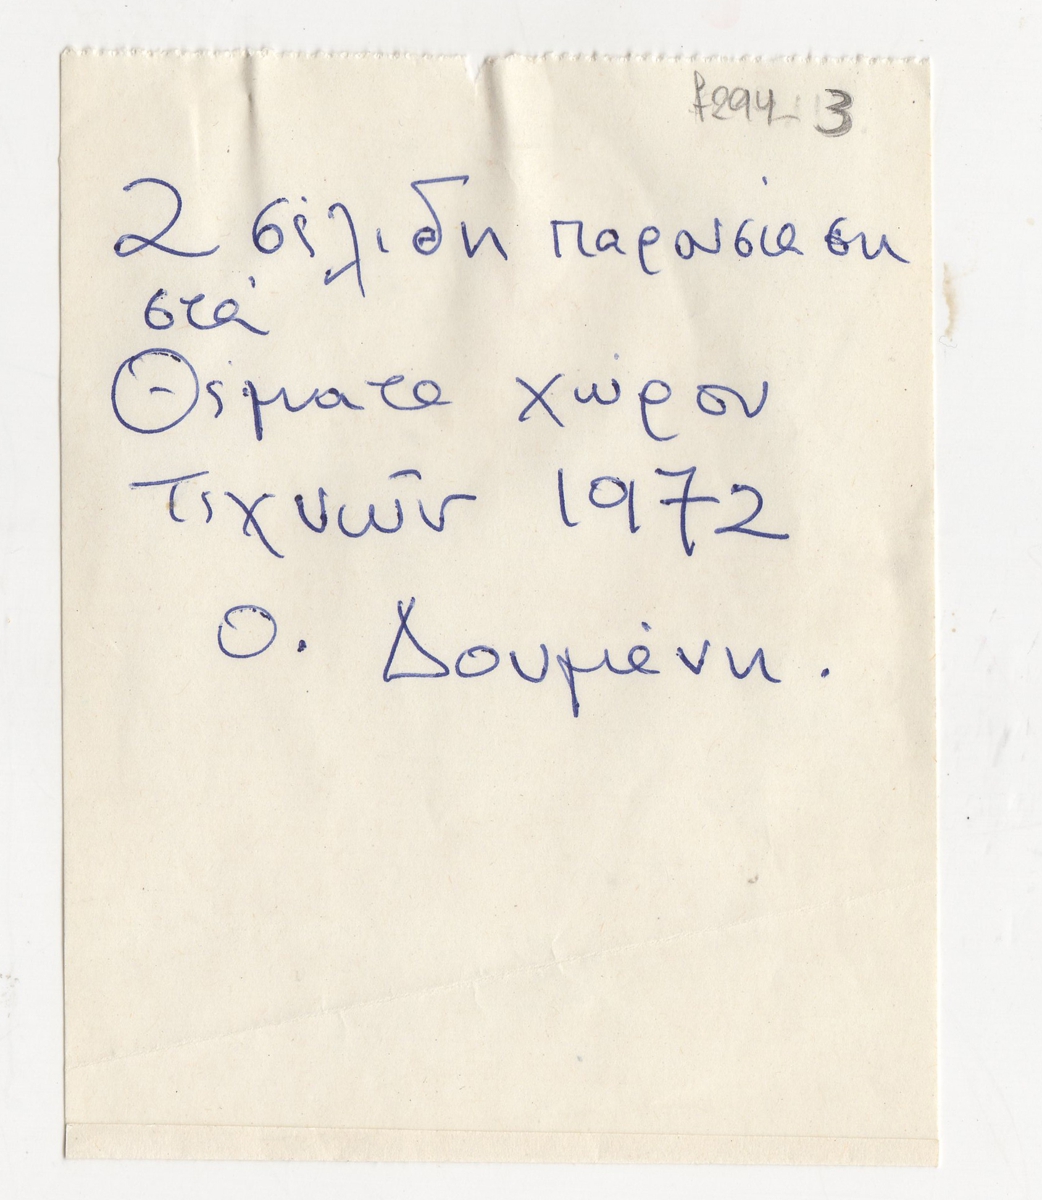 294 3
2 σέλιδη παρουσίαση
στὰ
Θέματα χώρου
Τεχνῶν 1972
Ο. Δουμάνη.